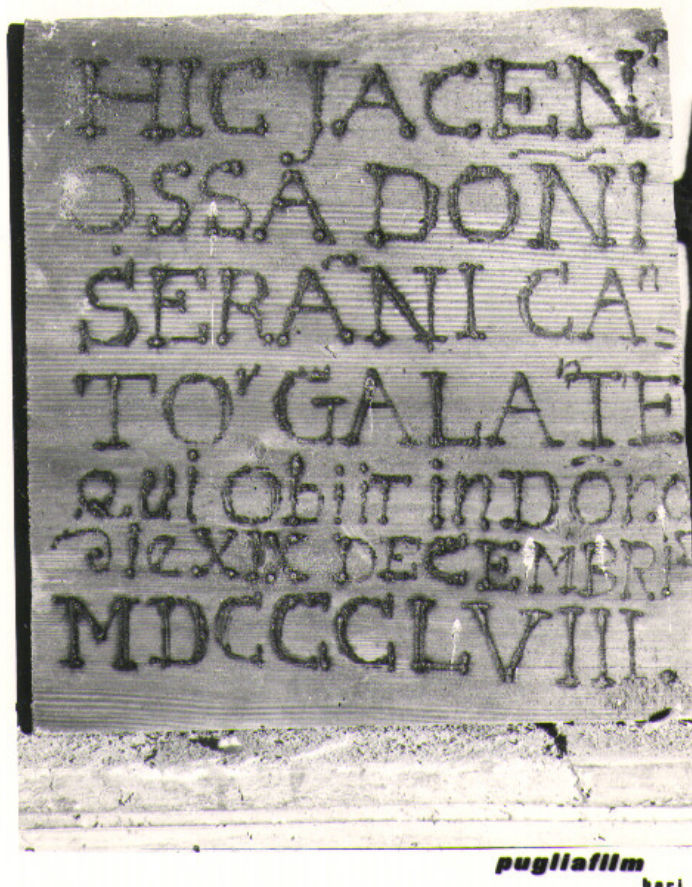 HIC JACENT
OSSA DOÑI
SERANI CAⁿ=
TOʳ GALAⁿTE
Qui Obiit in Dōno
die XIX DECEMBRIS
MDCCCLVIII.
pugliafilm
bari